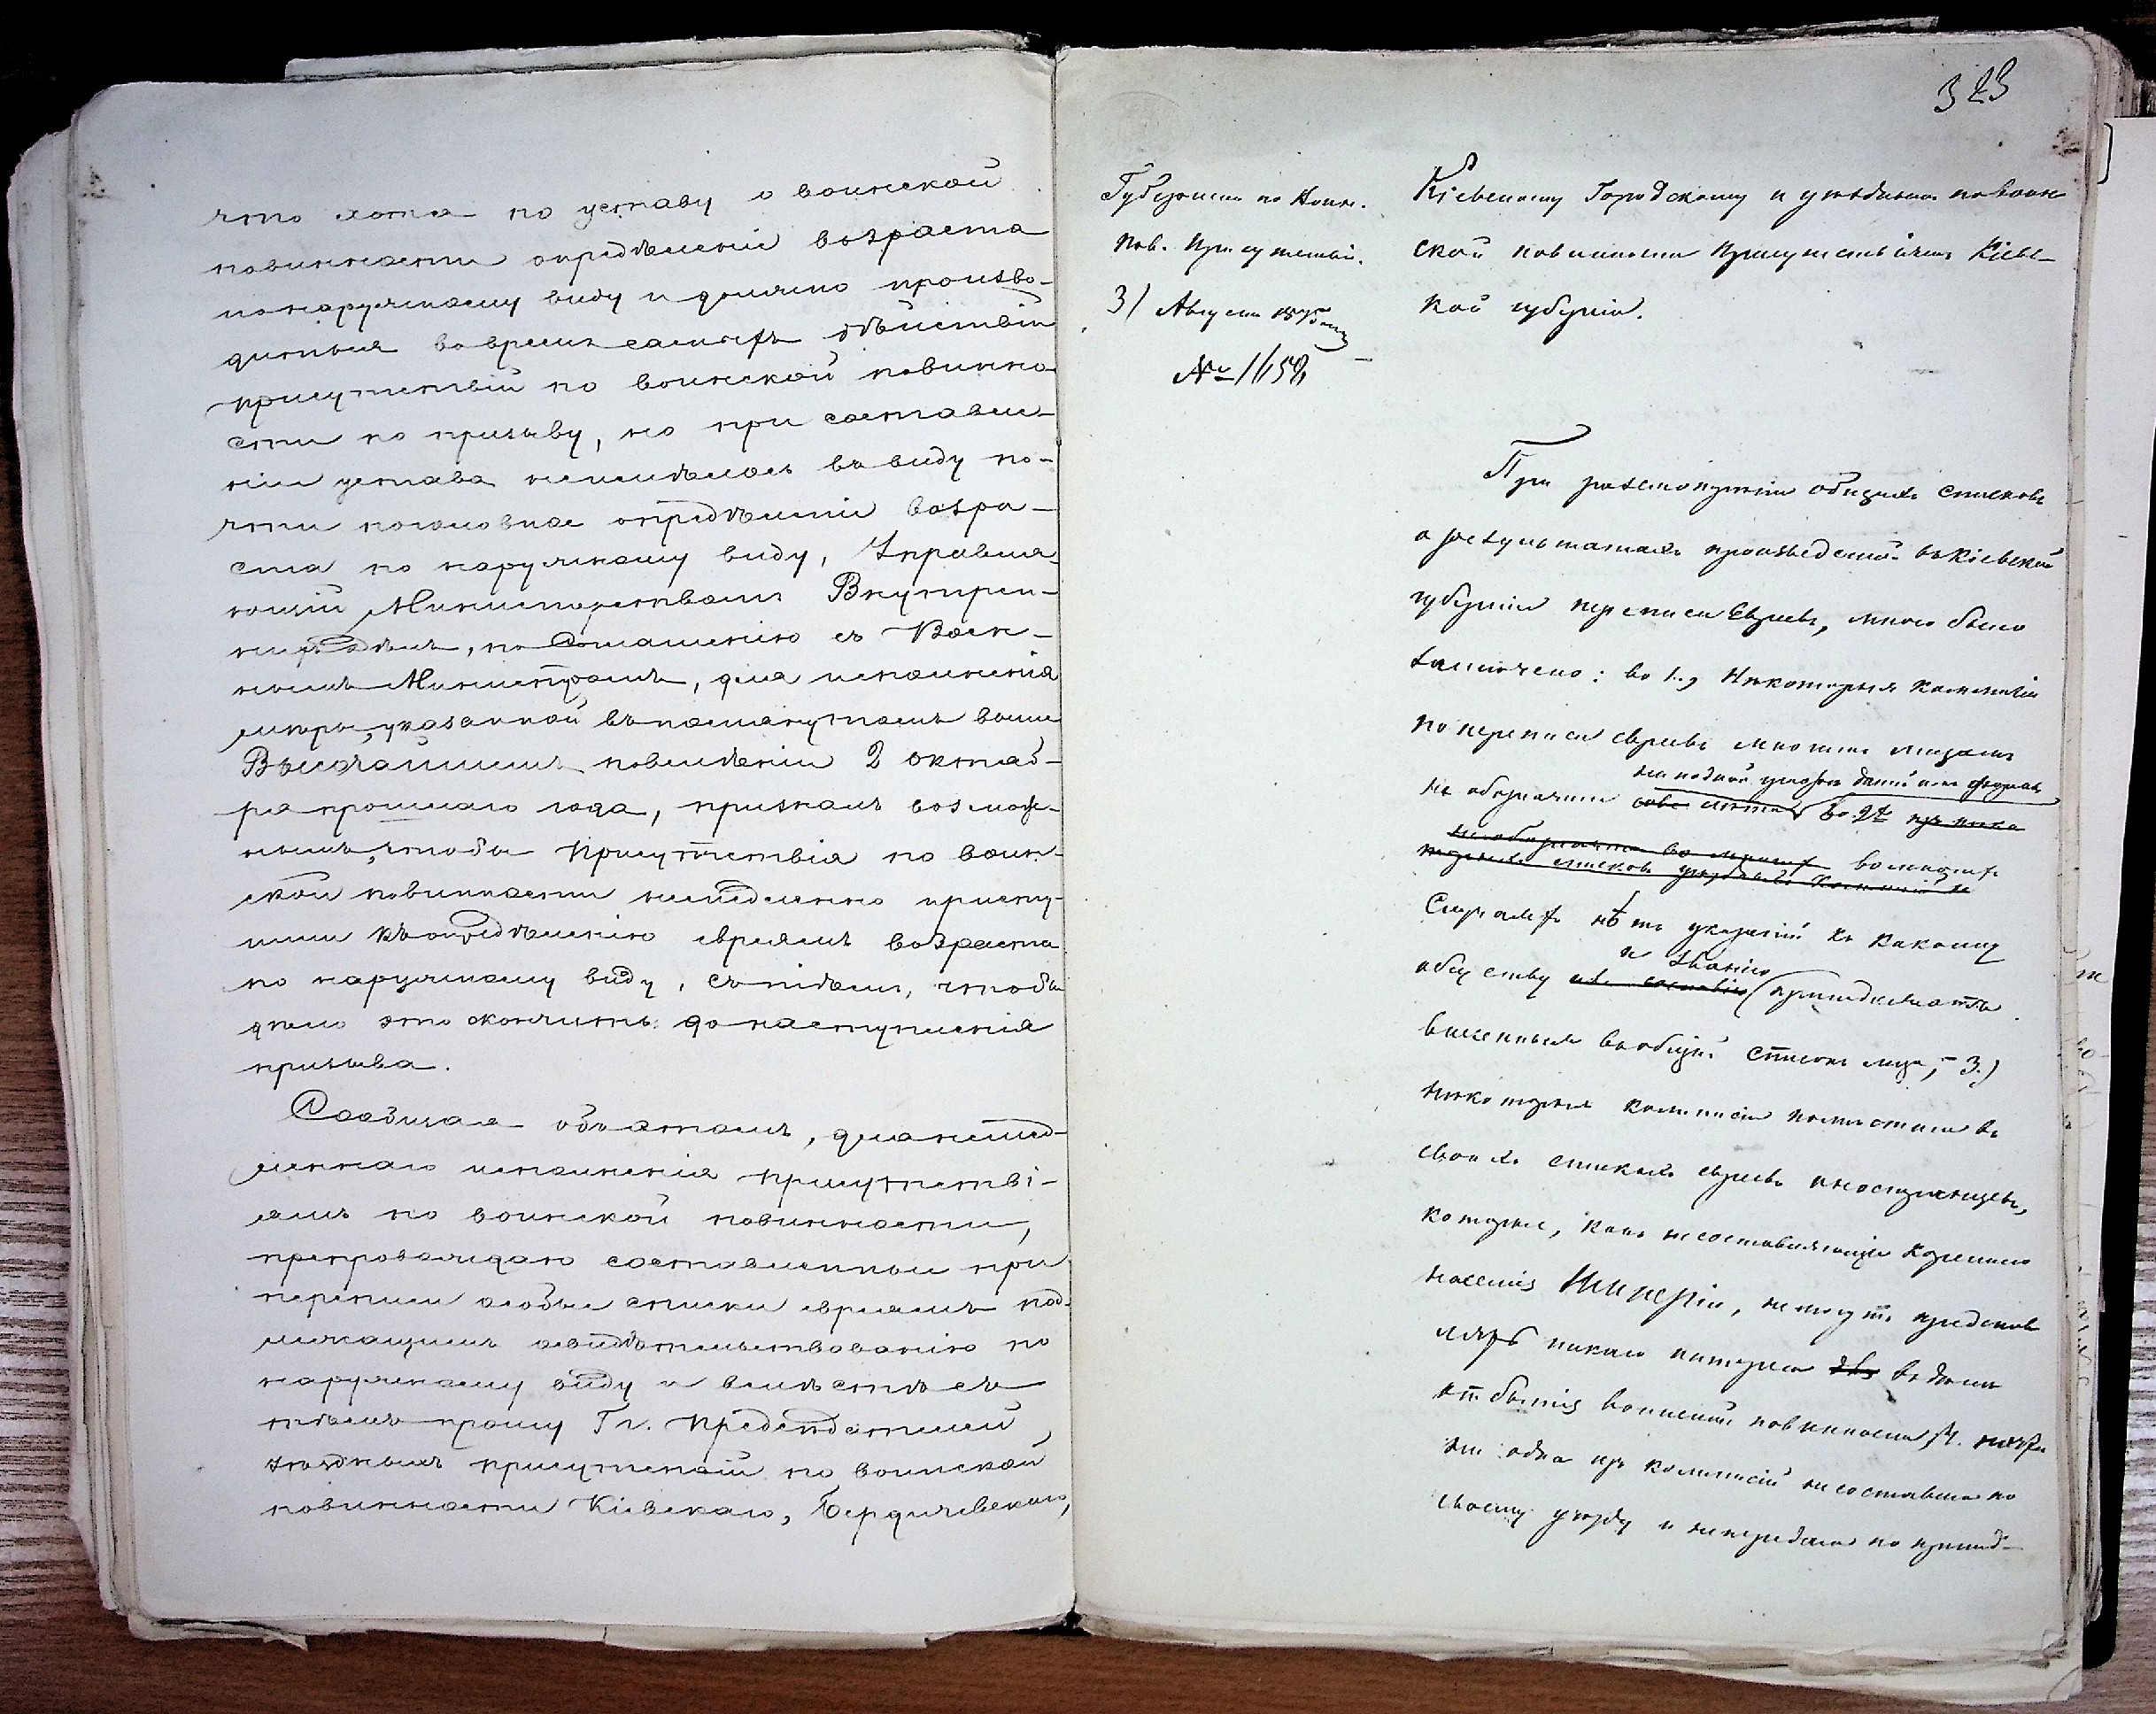 что хотя по уставу о воинской
повинности опредѣленіе возраста
по наружному виду и должно произво-
диться во время самихъ дѣйствій
присутствій по воинской повинно-
сти по призыву, но при составле-
ніи устава неимѣлось въ виду по-
чти поголовное опредѣленіе возра-
ста по наружному виду, Управля-
ющій Министерствомъ Внутрен-
нихъ Дѣлъ, по соглашенію съ Воен-
нымъ Министромъ, для исполненія
мѣры, указанной въ помянутомъ выше
Высочайшемъ повелѣніи 2 октяб-
ря прошлаго года, призналъ возмож-
нымъ, чтобы Присутствія по воин-
ской повинности немедленно присту-
пили къ опредѣленію евреямъ возраста
по наружному виду, съ тѣмъ, чтобы
дѣло это окончить до наступленія
призыва.
Сообщая объ этомъ, для немед-
леннаго исполненія присутстві-
ямъ по воинской повинности,
препровождаю составленные при
переписи особые списки евреямъ под-
лежащимъ освидѣтельствованію по
наружному виду и вмѣстѣ съ
тѣмъ прошу Гг. Предсѣдателей
уѣздныхъ присутствій по воинской
повинности Кіевскаго, Бердичевскаго,
323
Губернское по Воин.
Пов. Присутствіе.
31 Августа 1875 года
№ 1658
Кіевскому Городскому и уѣзднымъ по воин
ской повинности Присутствіямъ Кіевс-
кой губерніи.
При разсмотрѣніи общихъ списковъ
о результатахъ произведенной въ Кіевской
губерніи переписи Евреевъ, мною было
замѣчено: во 1., Нѣкоторыя коммисіи
по переписи евреевъ многимъ лицамъ
не обозначили лѣта во 2хъ
во многихъ
случаяхъ нѣтъ указаній къ какому
и званію
обществу принадлежатъ
внесенныя въ общій списокъ лица, - 3.)
нѣкоторыя коммисіи помѣстили въ
своихъ спискахъ евреевъ иностранцевъ,
которые, какъ не составляющіе кореннаго
населенія Имперіи, не могутъ представ
лять никакого интереса въ дѣлѣ
отбытія воинской повинности, 4. почти
ни одна изъ коммисій не составила по
своему уѣзду и не передала по принад-